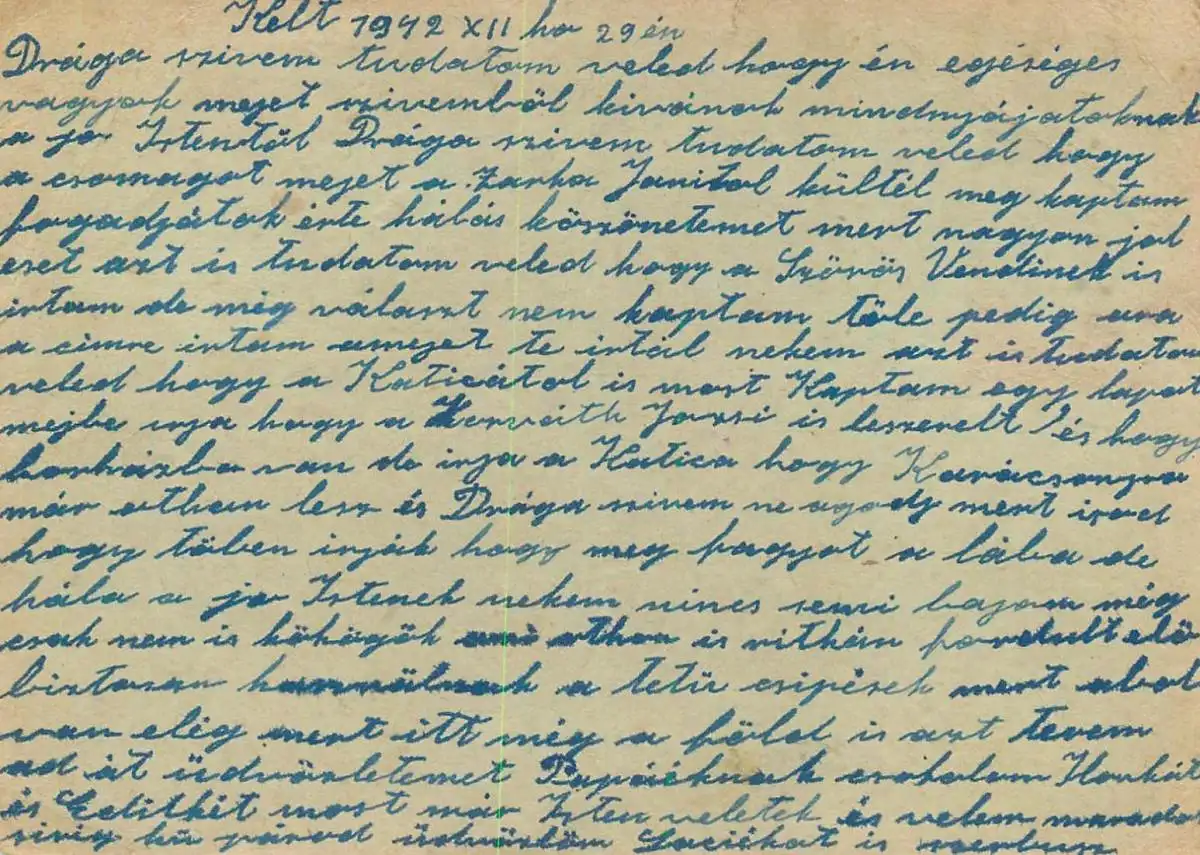 Kelt 1942 XII ho 29 én
Drága szivem tudatom veled hogy én egéséges
vagyok mejet szivemböl kivánok mindnyájatoknak
a jo Istentöl Drága szivem tudatom veled hogy
a csomagot mejet a Zarka Janitol kültél meg kaptam
fogadjátok érte hálás köszönetemet mert nagyon jol
eset azt is tudatom veled hogy a Szörös Vendinek is
irtam de még választ nem kaptam töle pedig ara
a cimre irtam amejet te irtál nekem azt is tudatom
veled hogy a Katicátol is most Kaptam egy lapot
mejbe irja hogy a Horváth Jozsi is leszerelt és hogy
korházba van de irja a Katica hogy Karácsonyra
már othon lesz és Drága szivem ne agody mert irod
hogy töben irják hogy meg fagyot a lába de
hála a jo Istenek nekem nincs semi bajom még
csak nem is köhögök ami othon is ritkán fordult elö
biztosan használnak a tetü csipések mert abol
van elég mert itt még a föld is azt terem
ad át üdvözletemet Papáéknak csokolom
és Editkét most már Isten veletek és velem maradok
sirig hü párod üdvözlöm Laciékat is